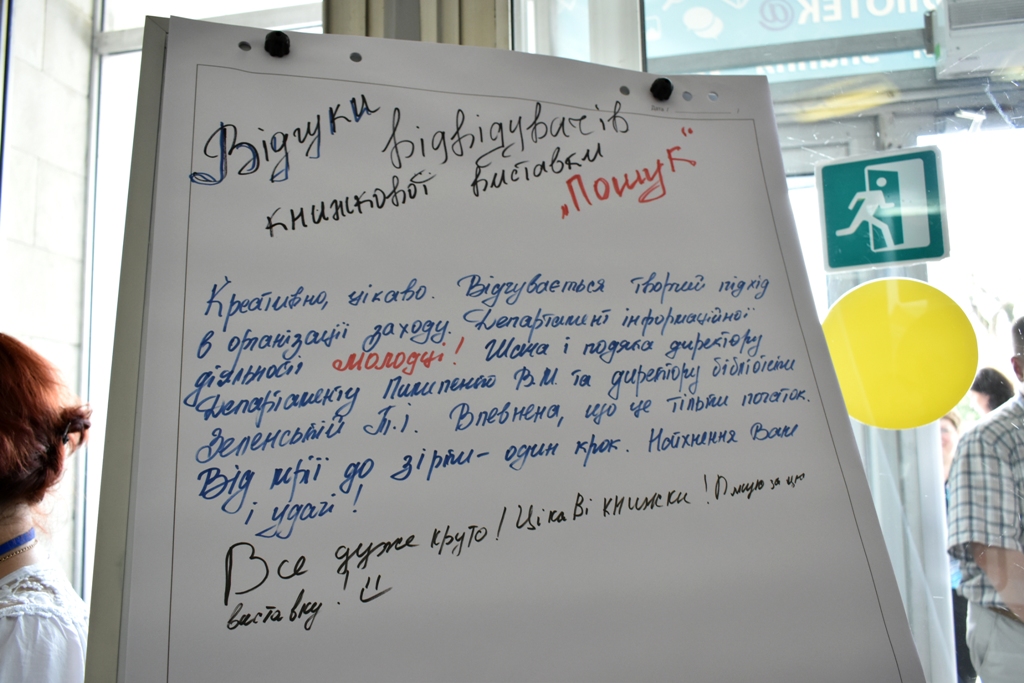 Відгуки відвідувачів
книжкової виставки
„Пошук"
Креативно, цікаво. Відчувається творчий підхід
в організації заходу. Департамент інформаційної
діяльності молодці! Шана і подяка директору
Департаменту Пилипенко В.М. та директору бібліотеки
Зеленській Т.І. Впевнена, що це тільки початок.
Від мрії до зірки - один крок. Натхнення Вам
і удачі!
Все дуже круто! Цікаві книжки! Дякую за цю
виставку!